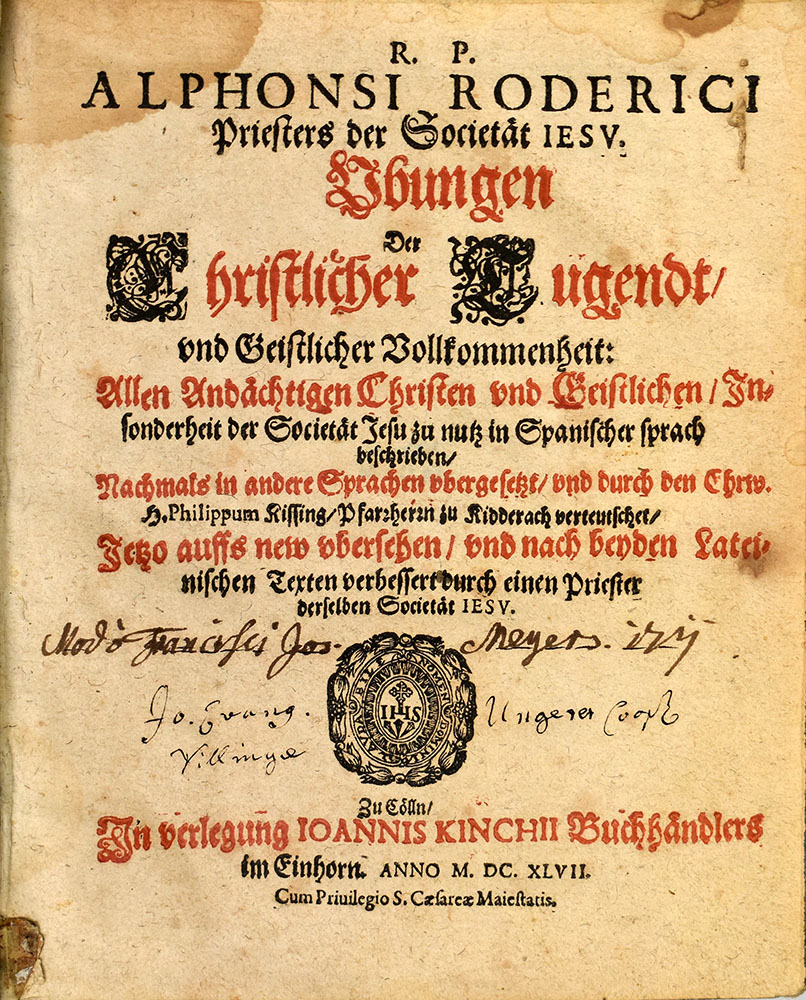 R. P.
ALPHONSI RODERICI
Priesters der Societät IESV.
Vbungen
Der
Christlicher Tugendt/
vnd Geistlicher Vollkommenheit:
Allen Andächtigen Christen vnd Geistlichen/ In-
sonderheit der Societät Jesu zu nutz in Spanischer sprach
beschrieben/
Nachmals in andere Sprachen vbergesetzt/ vnd durch den Ehrw.
H. Philippum Kissing/ Pfarzherzn zu Kidderach verteutschet/
Jetzo auffs new vbersehen/ vnd nach beyden Latei-
nischen Texten verbessert durch einen Priester
derselben Societät IESV.
Modò Francisci Jos. Meyers.
Jo. Evang. Ungerer
Villingæ
IHS
Zu Cölln/
In verlegung IOANNIS KINCHII Buchhändlers
im Einhorn. ANNO M. DC. XLVII.
Cum Priuilegio S. Cæsareæ Maiestatis.